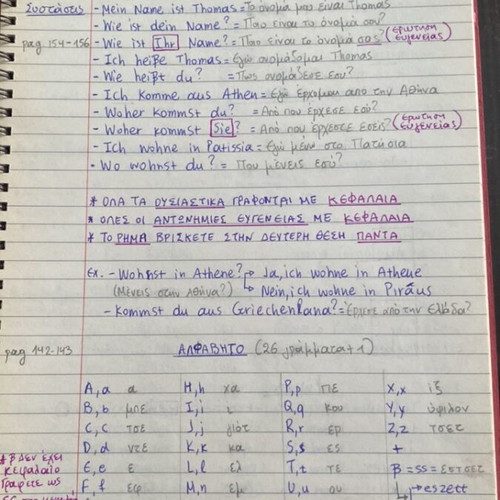 Συστάσεις - Mein Name ist Thomas = Το όνομά μου είναι Thomas
- Wie ist dein Name? = Ποιο είναι το όνομά σου?
pag 154-156 - Wie ist Ihr Name? = Ποιο είναι το όνομά σας? (Ερώτηση Ευγένειας)
- Ich heiße Thomas = Εγώ ονομάζομαι Thomas
- Wie heißt du? = Πως ονομάζεσε εσύ?
- Ich komme aus Athen = Εγώ έρχομαι από την Αθήνα
- Woher kommst du? = Από που έρχεσε εσύ?
- Woher kommst Sie? = Από που έρχεστε Εσείς? (Ερώτηση Ευγένειας)
- Ich wohne in Patissia = Εγώ μένω στα Πατήσια
- Wo wohnst du? = Που μένεις εσύ?
* ΟΛΑ ΤΑ ΟΥΣΙΑΣΤΙΚΑ ΓΡΑΦΟΝΤΑΙ ΜΕ ΚΕΦΑΛΑΙΑ
* ΟΛΕΣ ΟΙ ΑΝΤΩΝΗΜΙΕΣ ΕΥΓΕΝΕΙΑΣ ΜΕ ΚΕΦΑΛΑΙΑ
* ΤΟ ΡΗΜΑ ΒΡΙΣΚΕΤΕ ΣΤΗΝ ΔΕΥΤΕΡΗ ΘΕΣΗ ΠΑΝΤΑ
Ex. - Wohnst in Athene? → Ja, ich wohne in Athene
(Μένεις στην Αθήνα?) → Nein, ich wohne in Piräus
- Kommst du aus Griechenland? = Έρχεσε από την Ελλάδα?
pag 142-143 ΑΛΦΑΒΗΤΟ (26 γράμματα + 1)
A, a α H, h χα P, p πε X, x ιξ
B, b μπε I, i ι Q, q κου Y, y ύψιλον
C, c τσε J, j γιότ R, r ερ Z, z τσετ
D, d ντε K, k κα S, s ες +
* β ΔΕΝ ΕΧΕΙ
κεφαλαίο E, e ε L, l ελ T, t τε β = ss = εστσετ
γράφετε ως F f εφ M, m εμ U, u ου eszett